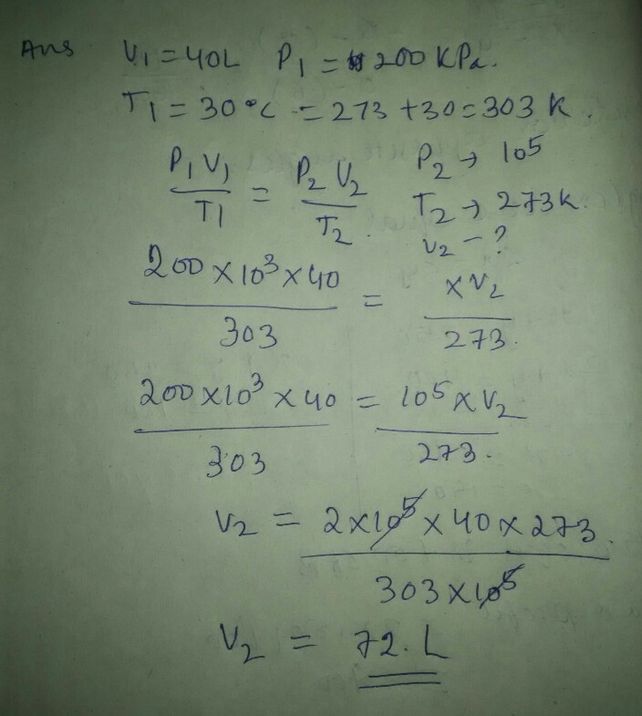 Ans V₁ = 40L P₁ = 200 KPa.
T₁ = 30°C = 273 + 30 = 303 K.
P₁V₁ / T₁ = P₂V₂ / T₂. P₂ → 10⁵
T₂ → 273K.
V₂ - ?
200 × 10³ × 40 / 303 = × V₂ / 273.
200 × 10³ × 40 / 303 = 10⁵ × V₂ / 273.
V₂ = 2 × 10⁵ × 40 × 273. / 303 × 10⁵
V₂ = 72. L